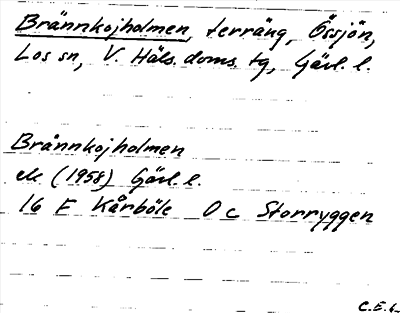 Brännkojholmen, terräng, Össjön,
Los sn, V. Häls. doms. tg, Gävl. l.
Brännkojholmen
ek (1958) Gävl. l.
16 F Kårböle 0 c Storryggen
C.E.L.